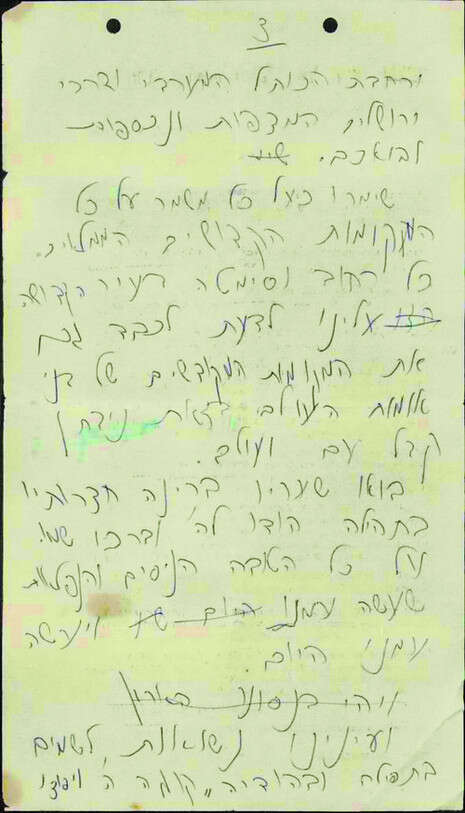 3
ורחבת הכותל המערבי ודרכי
ירושלים המצפות ונכספות
לבואכם. שימ
שימרו מעל כל משמר על כל
המקומות הקדושים הממלאים
כל רחוב וסימטה בעיר הקדושה
עלינו לדעת לכבד גם
את המקומות המקודשים של בני
אומות העולם
קבל עם ועולם.
בואו שעריו ברינה חצרותיו
בתהלה הודו לה' וברכו שמו
על כל הטובה הניסים והנפלאות
שעשה עמנו היום ויעשה
עמנו היום.
ויהי בנסוע הארון
ועינינו נשואות לשמים
בתפילה ובהודיה "קומה ה' ויפוצו